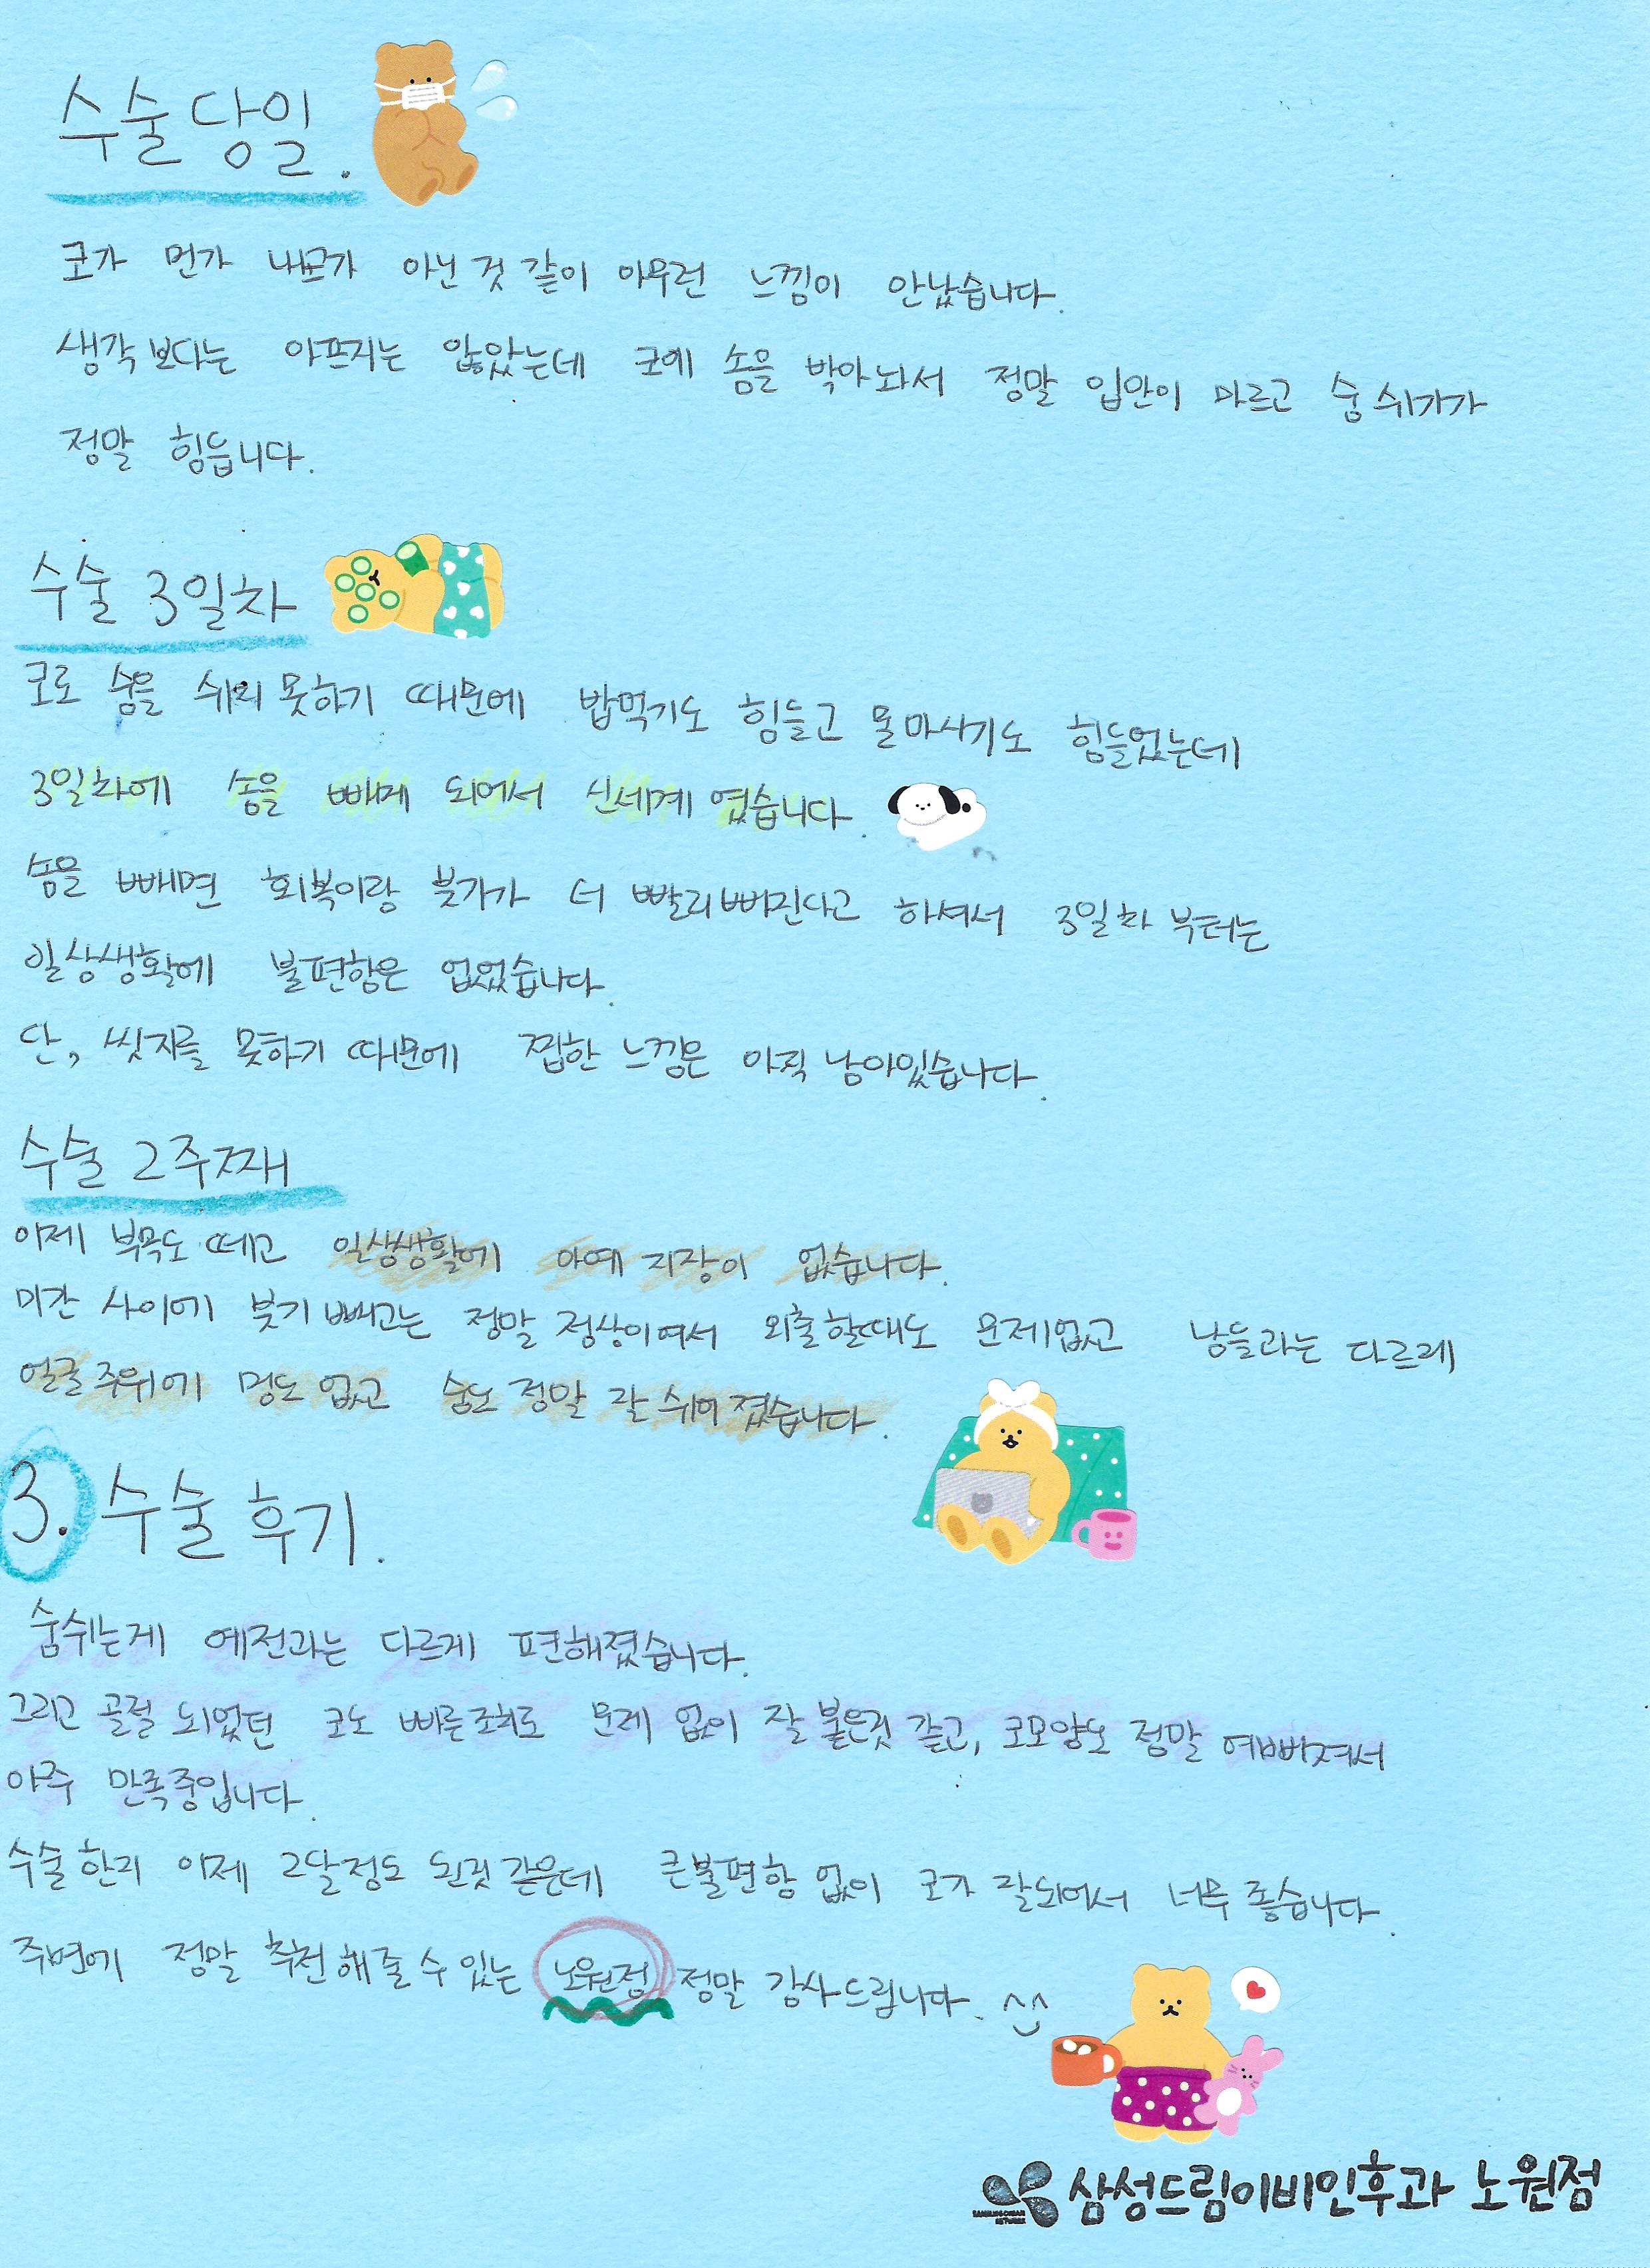 수술당일.
코가 먼가 내코가 아닌것 같이 아무런 느낌이 안났습니다.
생각보다는 아프지는 않았는데 코에 솜을 박아놔서 정말 입안이 마르고 숨쉬기가
정말 힘듭니다.
수술 3일차
코로 숨을 쉬지 못하기 때문에 밥먹기도 힘들고 물마시기도 힘들었는데
3일차에 솜을 빼게 되어서 신세계 였습니다.
솜을 빼면 회복이랑 붓기가 더 빨리빠진다고 하셔서 3일차 부터는
일상생활에 불편함은 없었습니다.
단, 씻지를 못하기 때문에 찝한 느낌은 아직 남아있습니다.
수술 2주째
이제 부목도 떼고 일상생활에 아예 지장이 없습니다.
미간 사이에 붓기 빼고는 정말 정상이여서 외출할때도 문제없고 남들과는 다르게
얼굴주위에 멍도 없고 숨도 정말 잘 쉬어 졌습니다.
3. 수술 후기.
숨쉬는게 예전과는 다르게 편해졌습니다.
그리고 골절 되었던 코도 빠른조치로 문제 없이 잘 붙은것 같고, 코모양도 정말 예뻐져서
아주 만족중입니다.
수술한지 이제 2달정도 된것 같은데 큰불편함 없이 코가 잘되어서 너무 좋습니다.
주변에 정말 추천해줄수있는 노원점 정말 감사드립니다. ^^
삼성드림이비인후과 노원점